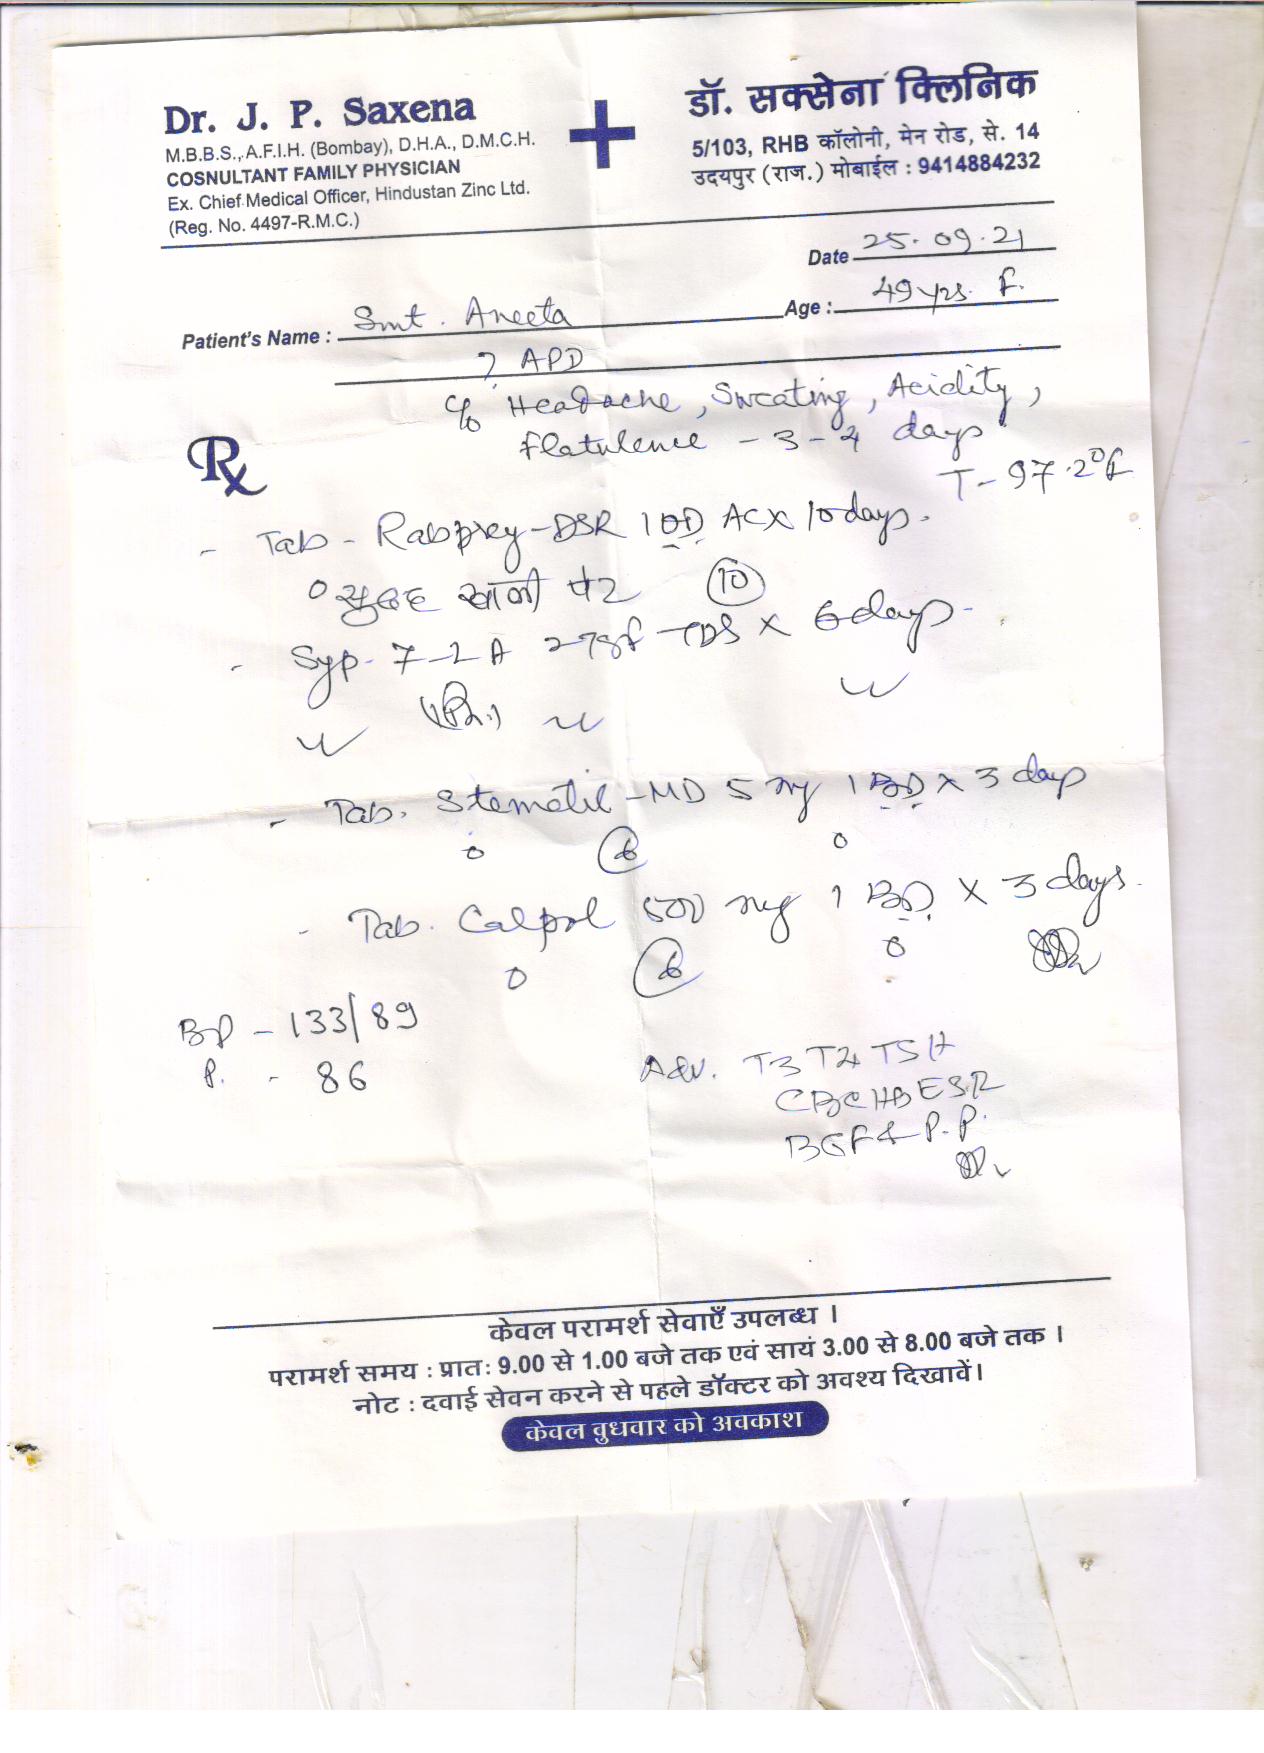 Dr. J. P. Saxena
M.B.B.S., A.F.I.H. (Bombay), D.H.A., D.M.C.H.
COSNULTANT FAMILY PHYSICIAN
Ex. Chief Medical Officer, Hindustan Zinc Ltd.
(Reg. No. 4497-R.M.C.)
डॉ. सक्सेना क्लिनिक
5/103, RHB कॉलोनी, मेन रोड, से. 14
उदयपुर (राज.) मोबाईल : 9414884232
Date 25.09.21
Patient's Name : Smt. Aneeta Age : 49 yrs. F.
? APD
c/o Headache, Sweating, Acidity,
Flatulence - 3-4 days
T- 97.2°F
Rx
- Tab - Rabprey-DSR 1 OD AC x 10 days.
सुबह खाली पेट 10
- Syp. TDS x 6 days-
- Tab. Stemetil-MD 5 mg 1 BD x 3 days
6
- Tab. Calpol 500 mg 1 BD x 3 days.
6
BP - 133/89
P. - 86
Adv. T3 T4 TSH
CBC HB ESR
BGF & P.P.
केवल परामर्श सेवाएँ उपलब्ध ।
परामर्श समय : प्रातः 9.00 से 1.00 बजे तक एवं सायं 3.00 से 8.00 बजे तक ।
नोट : दवाई सेवन करने से पहले डॉक्टर को अवश्य दिखावें।
केवल बुधवार को अवकाश